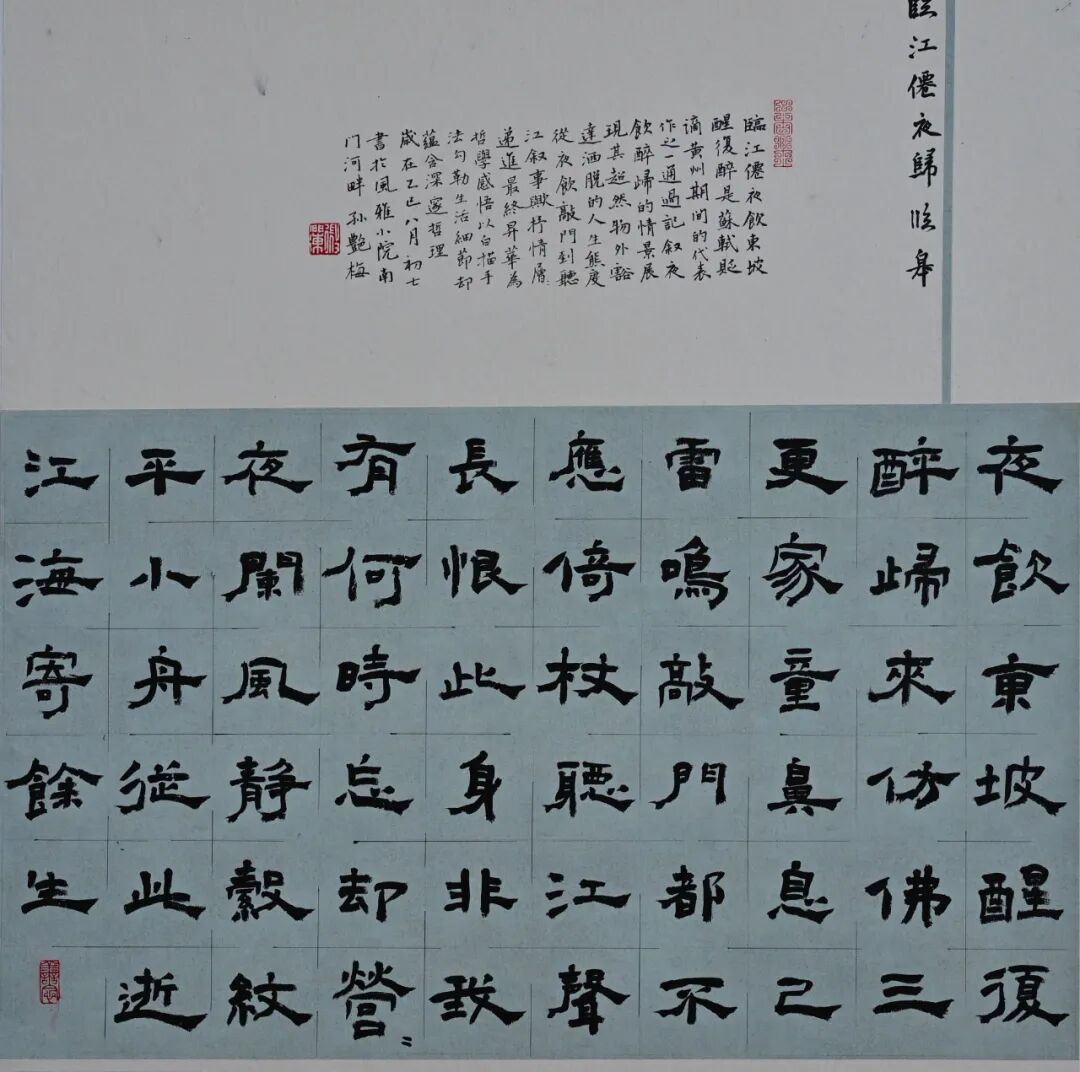 臨江僊夜歸临皋
臨江僊夜飲東坡
醒復醉是蘇軾貶
謫黃州期間的代表
作之一通過記叙夜
飲醉歸的情景展
現其超然物外豁
達洒脱的人生態度
從夜飲敲門到聽
江叙事與抒情層〻
遞進最終昇華為
哲學感悟以白描手
法勾勒生活細節却
蘊含深邃哲理
歲在乙巳八月初七
書於風雅小院南
门河畔 孙艷梅
夜飲東坡醒復
醉歸來仿佛三
更家童鼻息已
雷鳴敲門都不
應倚杖聽江聲
長恨此身非我
有何時忘却營〻
夜闌風靜縠紋
平小舟從此逝
江海寄餘生